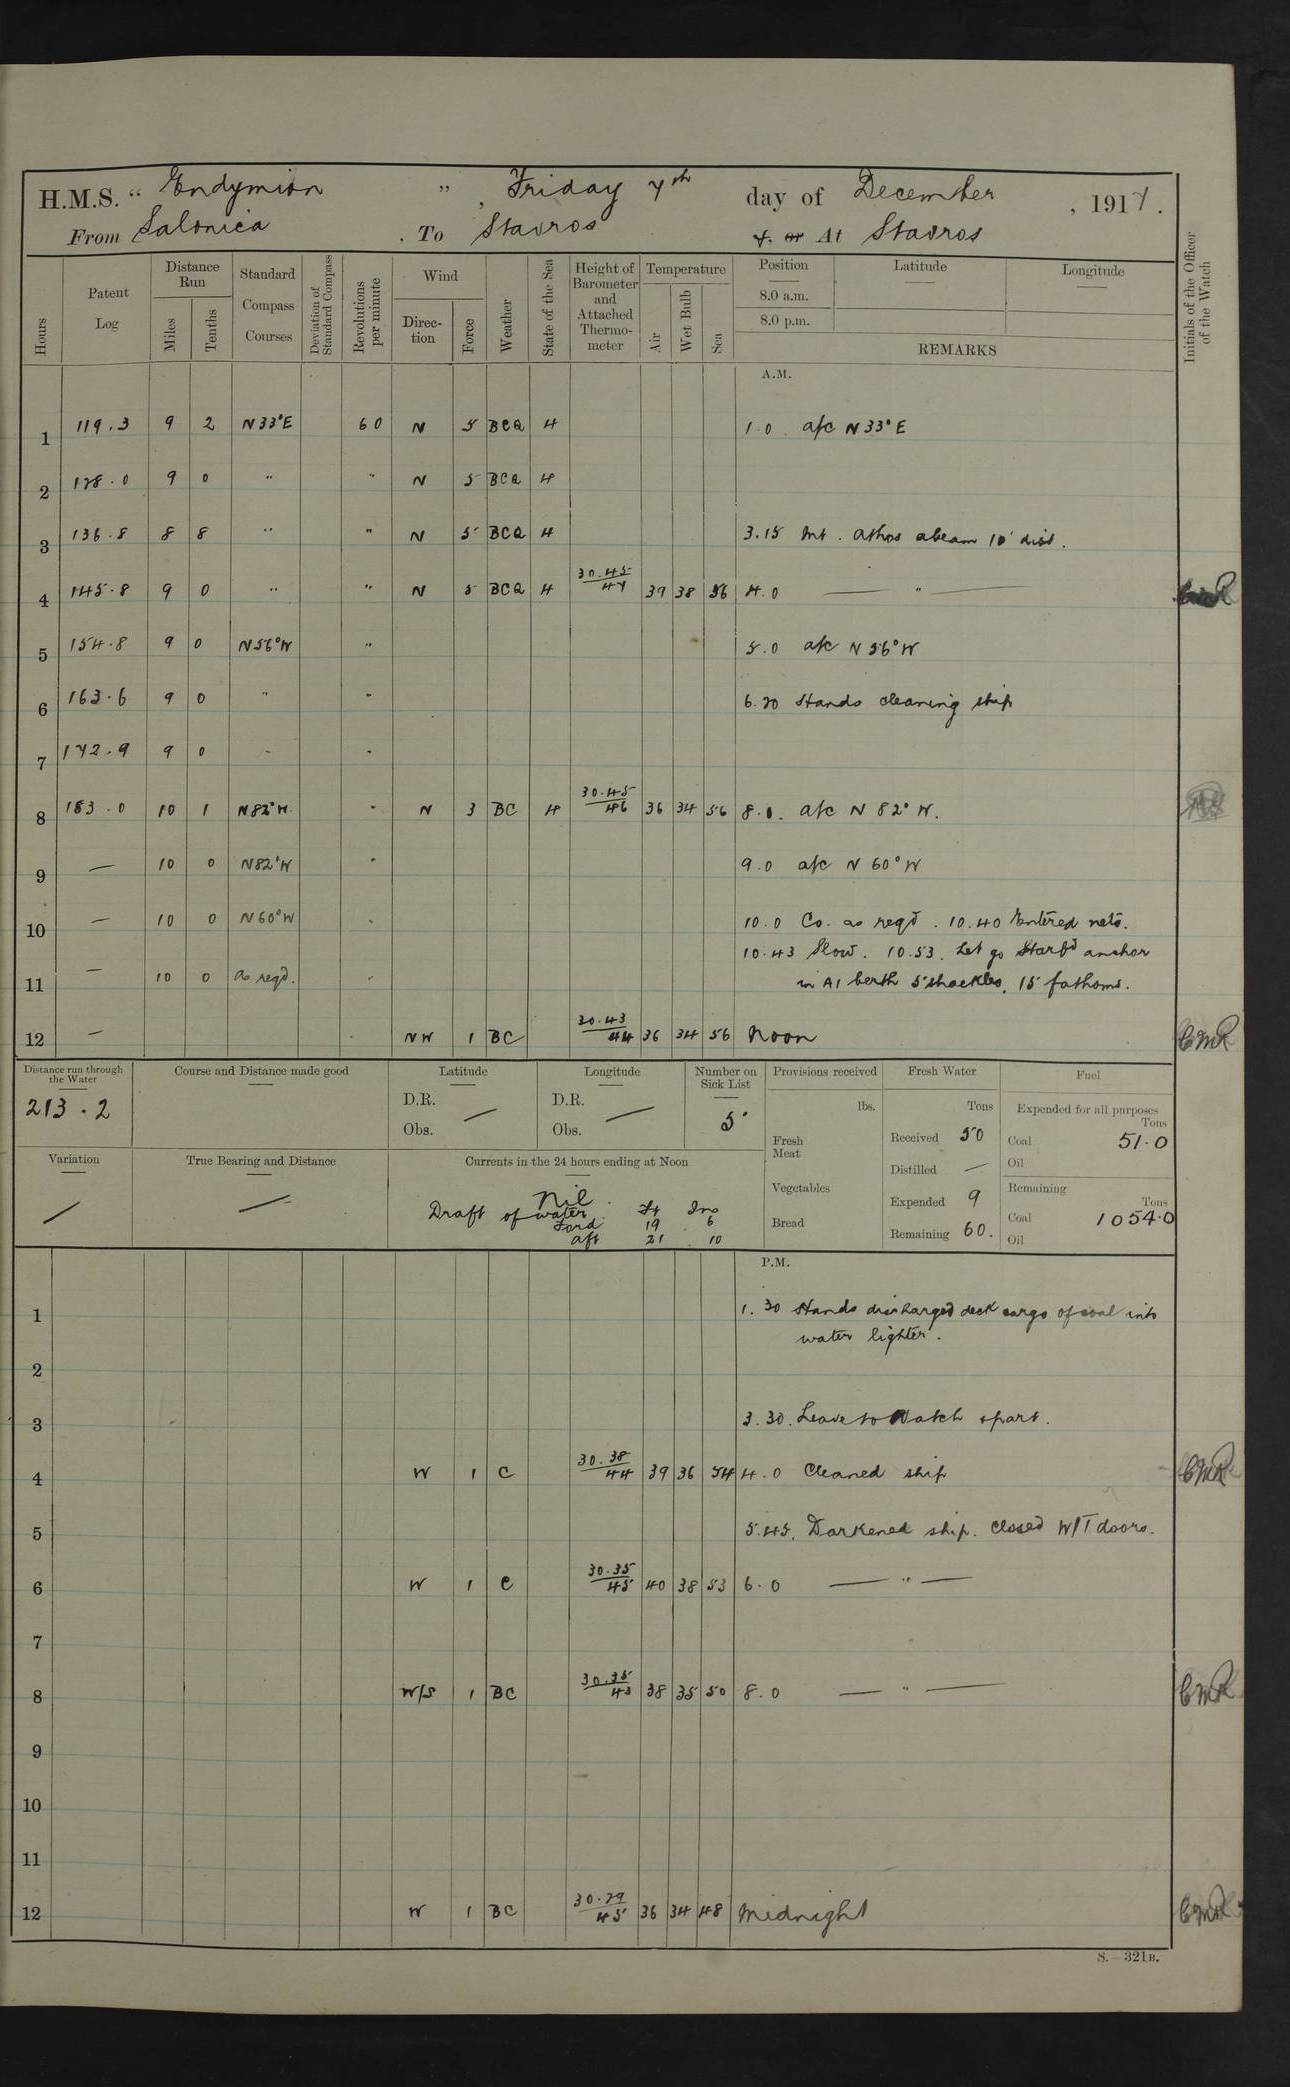 H.M.S. “ Endymion ” , Friday 7th day of December , 1917 .
From Salonica , To Stavros , or At Stavros
Hours Patent Log Distance Run Miles Tenths Standard Compass Courses Deviation of Standard Compass Revolutions per minute Wind Direc-tion Force Weather State of the Sea Height of Barometer and Attached Thermo-meter Temperature Air Wet Bulb Sea Position Latitude Longitude Initials of the Officer of the Watch
8.0 a.m.
8.0 p.m.
REMARKS
A.M.
1 119.3 9 2 N33°E 60 N 5 BCQ 4 1.0 a/c N33°E
2 128.0 9 0 " " N 5 BCQ 4
3 136.8 8 8 " " N 5 BCQ 4 3.15 Mt. Athos abeam 10' dist.
4 145.8 9 0 " " N 5 BCQ 4 30.45/47 39 38 56 4.0 — " —
5 154.8 9 0 N56°W " 5.0 a/c N56°W
6 163.6 9 0 " " 6.20 Hands cleaning ship
7 172.9 9 0 " "
8 183.0 10 1 N82°W " N 3 BC 4 30.45/46 36 34 56 8.0. a/c N 82° W.
9 — 10 0 N82°W " 9.0 a/c N 60° W
10 — 10 0 N60°W " 10.0 Co. as reqd. 10.40 Entered nets.
10.43 Slow. 10.53. Let go Starbd anchor
11 — 10 0 as reqd. " in A1 berth 5 shackles, 15 fathoms.
12 — NW 1 BC 30.43/44 36 34 56 Noon CMR
Distance run through the Water Course and Distance made good Latitude Longitude Number on Sick List Provisions received Fresh Water Fuel
213.2 D.R. — D.R. — 5 lbs. Tons Expended for all purposes Tons
Obs. Obs. Fresh Meat Received 50 Coal 51.0
Distilled — Oil
Variation True Bearing and Distance Currents in the 24 hours ending at Noon Vegetables Expended 9 Remaining Tons
/ — Nil. Bread Remaining 60. Coal 1054.0
Draft of water Ft Ins Oil
Ford 19 6
Aft 21 10
P.M.
1 1.30 Hands discharged deck cargo of coal into
water lighter.
2
3 3.30. Leave to Watch & part.
4 W 1 C 30.38/44 39 36 54 4.0 Cleaned ship CMR
5 5.45. Darkened ship. Closed W/T doors.
6 W 1 C 30.35/45 40 38 53 6.0 — " —
7
8 W/S 1 BC 30.35/43 38 35 50 8.0 — " — CMR
9
10
11
12 W 1 BC 30.29/45 36 34 48 Midnight CMR
S.—321B.